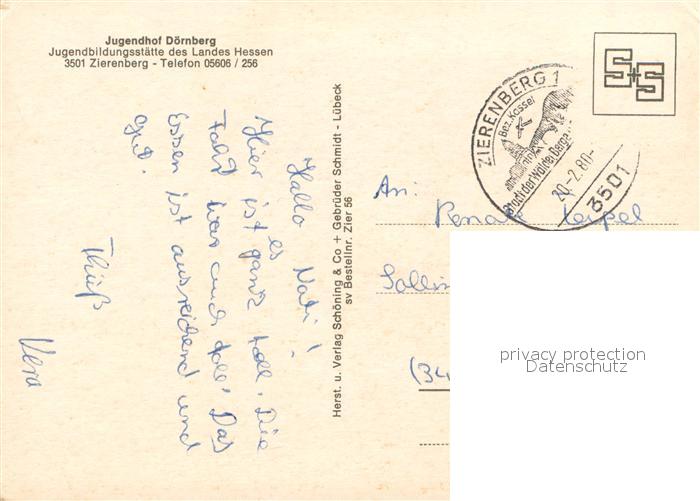 Jugendhof Dörnberg
Jugendbildungsstätte des Landes Hessen
3501 Zierenberg - Telefon 05606 / 256
Hallo Nati!
Hier ist es ganz toll. Die
Fahrt war auch toll. Das
Essen ist ausreichend und
gut.
Tschüß
Vera
Herst. u. Verlag Schöning & Co + Gebrüder Schmidt - Lübeck
sv Bestellnr. Zier 56
S+S
ZIERENBERG 1
Bez. Kassel
Stadt der Wälder Berge
20.-2.80-
3501
An:
Renate
Sollin
(34
privacy protection
Datenschutz